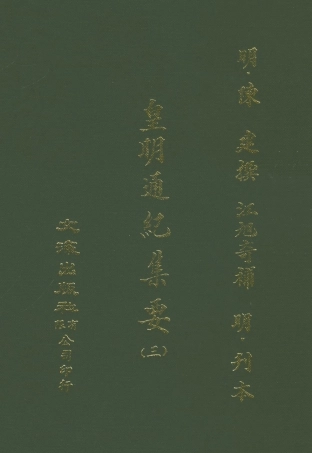 明·陳 建撰 江旭奇補 明·刊本
皇明通紀集要(三)
文海出版社有限公司印行